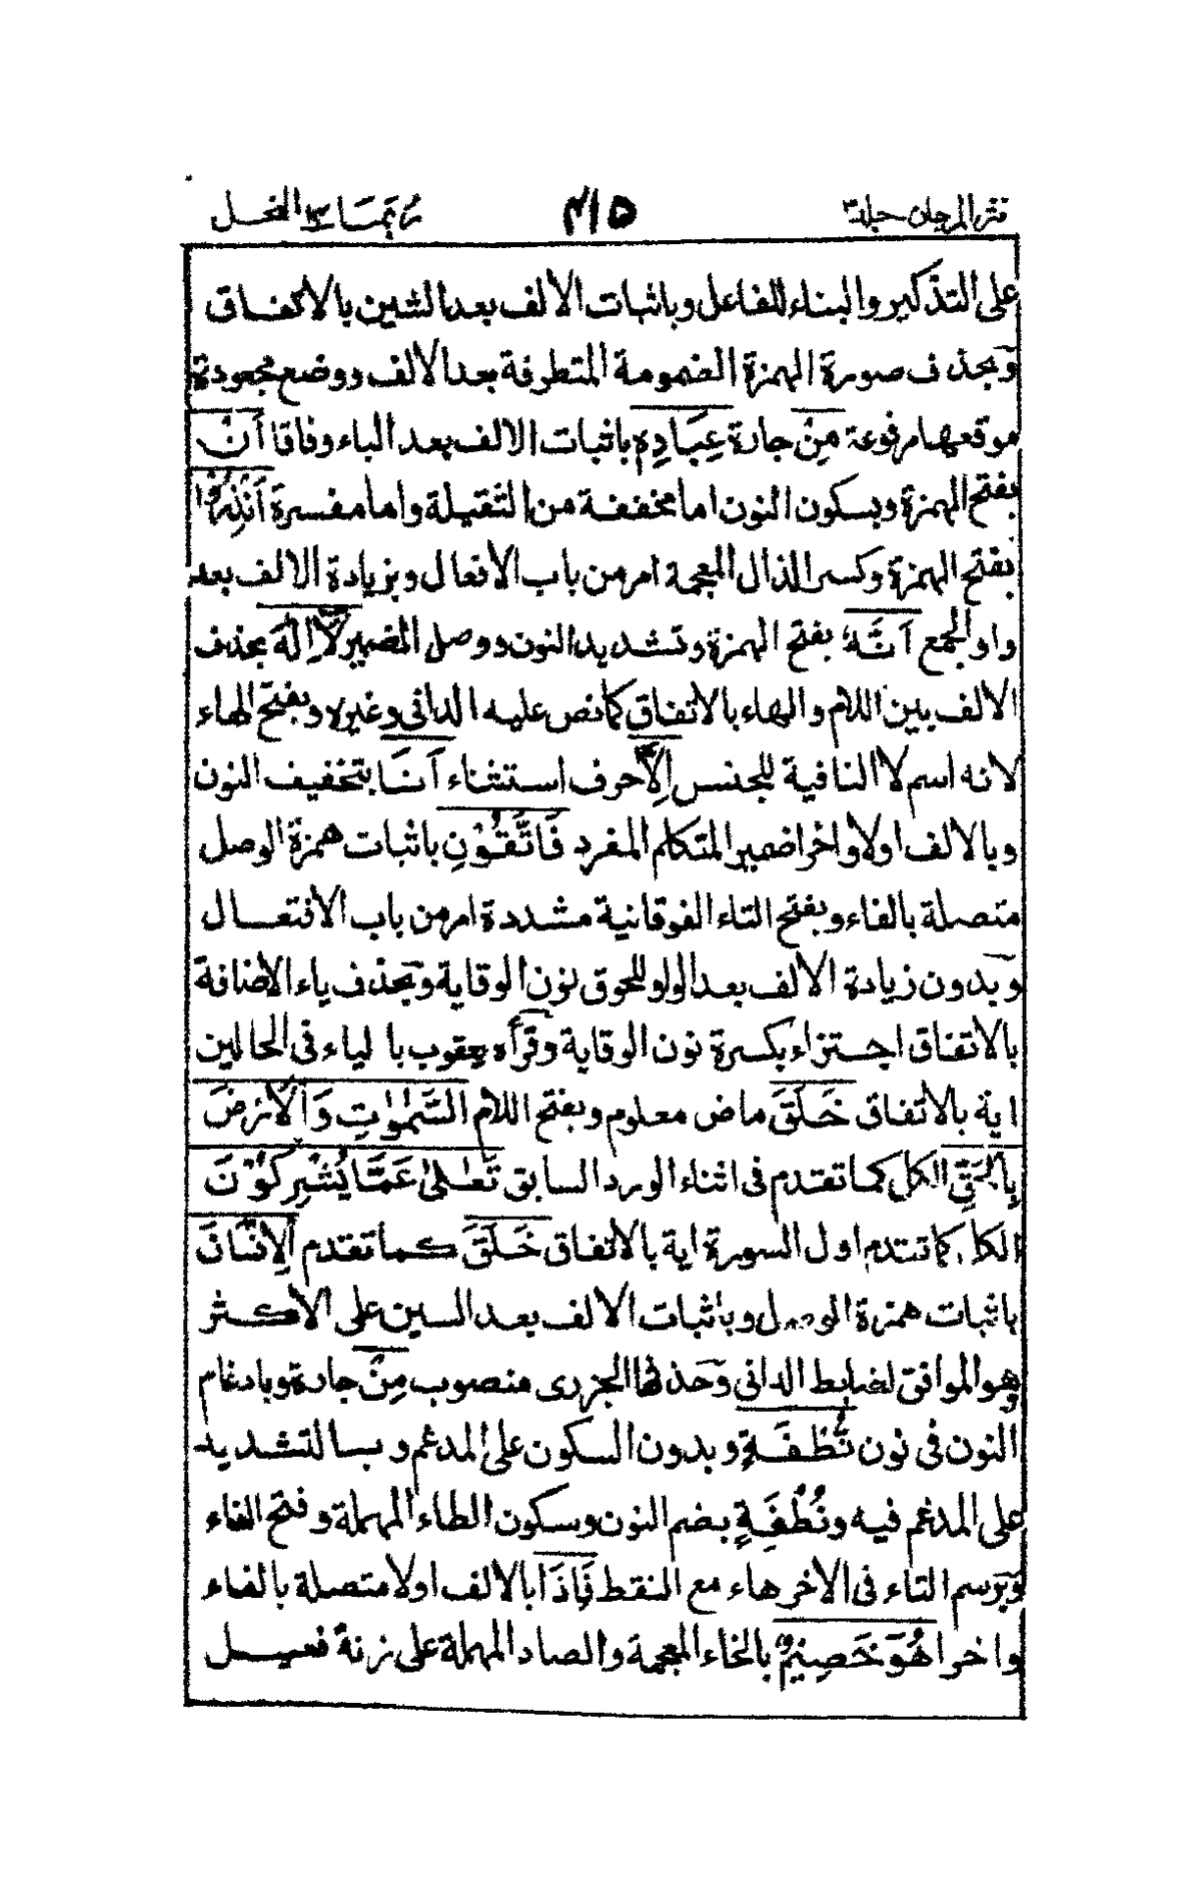 نثر المرجان جلد ٣
٤١٥
ربما ١٤ النحل
على التذكير والبناء للفاعل وباثبات الالف بعد الشين بالاتفاق
وبحذف صورة الهمزة المضمومة المتطرفة بعد الالف ووضع مجعودة
موقعها مرفوعة مِنْ جارة عِبَادِهِ باثبات الالف بعد الباء وفاقا اَنْ
بفتح الهمزة وبسكون النون اما مخففة من الثقيلة واما مفسرة اَنْذِرُوْا
بفتح الهمزة وكسر الذال المعجمة امر من باب الافعال وبزيادة الالف بعد
واو الجمع اَنَّهُ بفتح الهمزة وتشديد النون ووصل الضمير لَآ اِلٰهَ بحذف
الالف بين اللام والهاء بالاتفاق كما نص عليه الدانى وغيره وبفتح الهاء
لانه اسم لا النافية للجنس اِلَّآ حرف استثناء اَنَا بتخفيف النون
وبالالف اولا واخرا ضمير المتكلم المفرد فَاتَّقُوْنِ باثبات همزة الوصل
متصلة بالفاء وبفتح التاء الفوقانية مشددة امر من باب الافتعال
وبدون زيادة الالف بعد الواو للحوق نون الوقاية وبحذف ياء الاضافة
بالاتفاق اجتزاء بكسرة نون الوقاية وقرأه يعقوب بالياء فى الحالين
اية بالاتفاق خَلَقَ ماض معلوم وبفتح اللام السَّمٰوٰتِ وَالْاَرْضَ
بِالْحَقِّ الكل كما تقدم فى اثناء الورد السابق تَعٰلٰى عَمَّا يُشْرِكُوْنَ
الكل كما تقدم اول السورة اية بالاتفاق خَلَقَ كما تقدم الْاِنْسَانَ
باثبات همزة الوصل وباثبات الالف بعد السين على الاكثر
وهو الموافق لضابط الدانى وحذفها الجزرى منصوب مِنْ جارة وبادغام
النون فى نون نُّطْفَةٍ وبدون السكون على المدغم وبالتشديد
على المدغم فيه ونُطْفَةٍ بضم النون وسكون الطاء المهملة وفتح الفاء
وبرسم التاء فى الاخر هاء مع النقط فَاِذَا بالالف اولا متصلة بالفاء
واخرا هُوَ خَصِيْمٌ بالخاء المعجمة والصاد المهملة على زنة فعيل